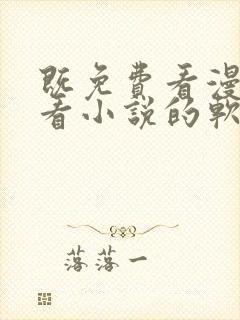 既免費看漫
看小說的軟
落落一